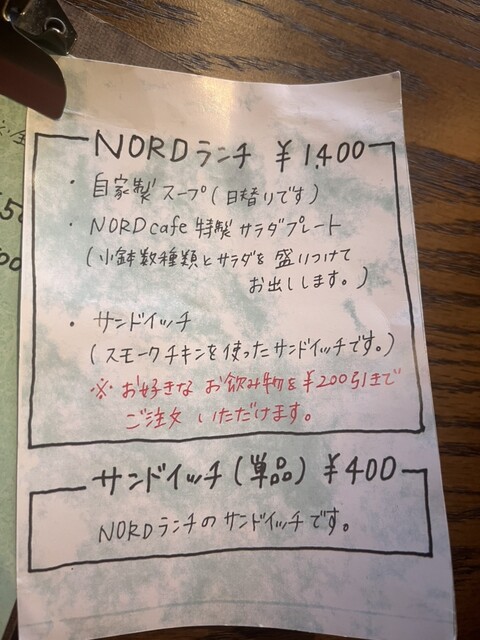 NORDランチ ¥1,400
・自家製 スープ(日替りです)
・NORD cafe 特製 サラダプレート
(小鉢数種類とサラダを 盛りつけて
お出しします。)
・サンドイッチ
(スモークチキンを使ったサンドイッチです。)
※お好きな お飲み物を¥200引きで
ご注文 いただけます。
サンドイッチ(単品) ¥400
NORDランチのサンドイッチです。